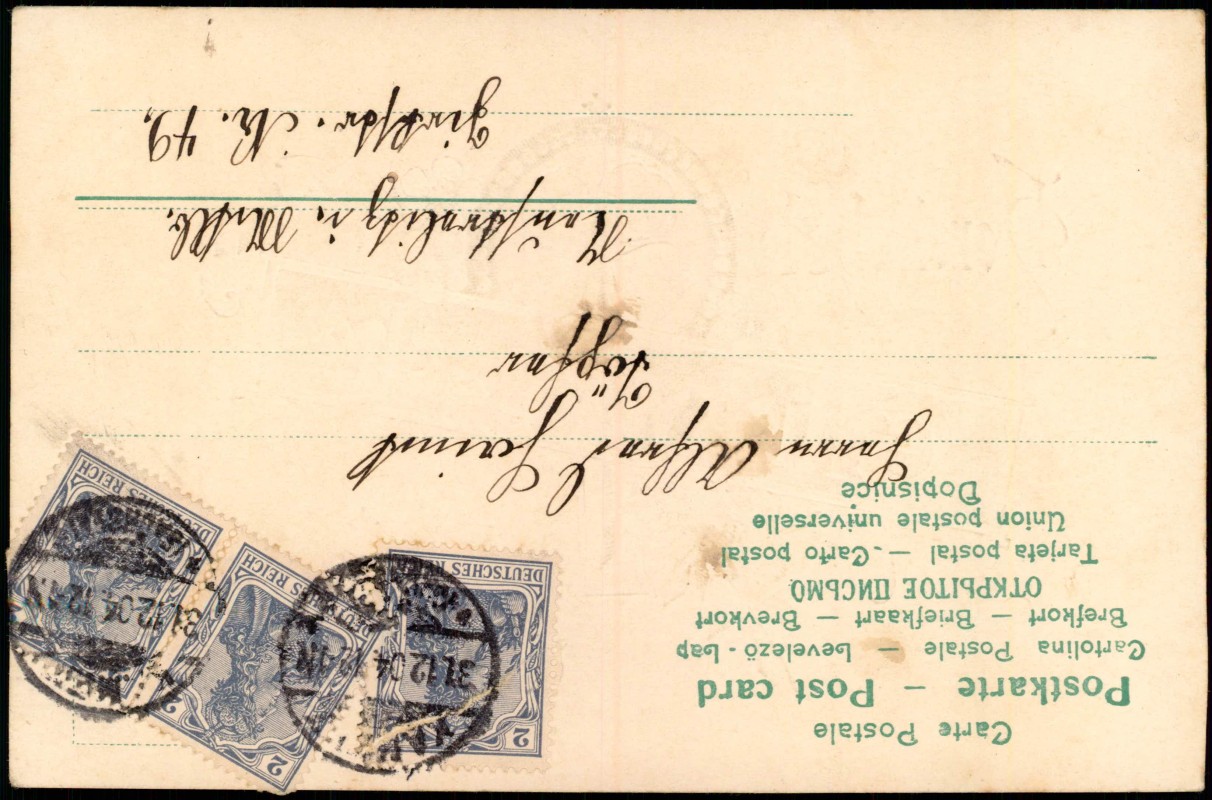 Carte Postale
Postkarte — Post card
Cartolina Postale — Levelezö-Lap
Brefkort — Briefkaart — Brevkort
ОТКРЫТОЕ ПИСЬМО
Tarjeta postal — Carto postal
Union postale universelle
Dopisnice
2
DEUTSCHES REICH
31.12.04
2
DEUTSCHES REICH
31.12.04.12-1N
DEUTSCHES REICH
Herrn Alfred
Töpfer
Neustrelitz i. Meckl.
Nr. 49,